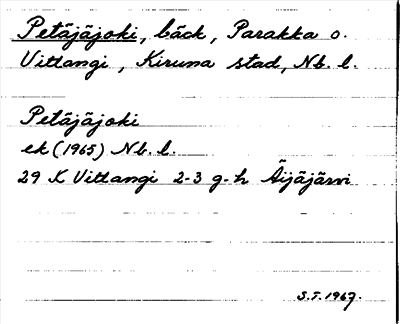 Petäjäjoki, bäck, Parakka o.
Vittangi, Kiruna stad, Nb. l.
Petäjäjoki
ek (1965) Nb. l.
29 K Vittangi 2-3 g-h Äijäjärvi
S.F. 1967.